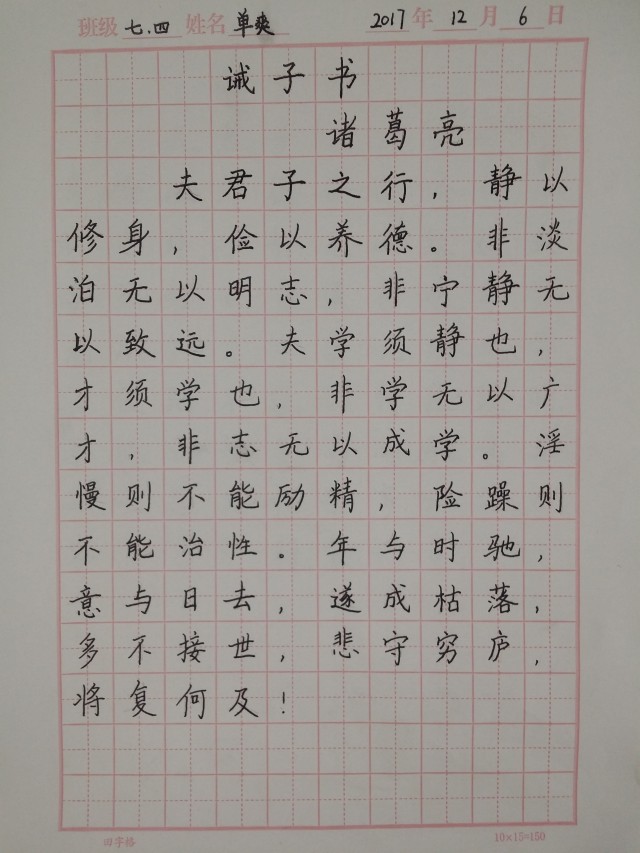 班级 七.四 姓名 单爽 2017 年 12 月 6 日
诫子书
诸葛亮
夫君子之行，静以
修身，俭以养德。非淡
泊无以明志，非宁静无
以致远。夫学须静也，
才须学也，非学无以广
才，非志无以成学。淫
慢则不能励精，险躁则
不能治性。年与时驰，
意与日去，遂成枯落，
多不接世，悲守穷庐，
将复何及！
田字格 10×15=150